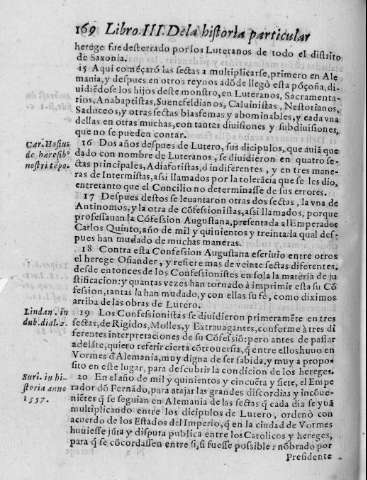 169 Libro III. De la historia particular
herege fue desterrado por los Luteranos de todo el distrito
de Saxonia.
15 Aqui començarō las sectas a multiplicarse, primero en Ale
mania, y despues en otros reynos adōde llegò esta pōçoña, di-
uidiēdose los hijos deste monstro, en Luteranos, Sacramenta-
rios, Anabaptistas, Suencfeldianos, Caluinistas, Nestorianos,
Saduceos, y otras sectas blasfemas y abominables, y cada vna
dellas en otras muchas, con tantas diuisiones y subdiuisiones,
que no se pueden contar.
Car. Hosius
de hæresib⁹
nostri tēpo.
16 Dos años despues de Lutero, sus dicipulos, que auiā que
dado con nombre de Luteranos, se diuidieron en quatro se-
ctas principales, Adiaforistas, ò indiferentes, y en tres mane
ras de Intermistas, assi llamados por la tolerācia que se les dio,
entretanto que el Concilio no determinasse de sus errores.
17 Despues destos se leuantaron otras dos sectas, la vna de
Antinomos, y la otra de Cōfessionistas, assi llamados, porque
professauan la Cōfession Augustana, presentada al Emperador
Carlos Quinto, año de mil y quinientos y treinta: la qual des-
pues han mudado de muchas maneras.
18 Contra esta Confession Augustana escriuio entre otros
el herege Osiander, y refiere mas de veinte sectas diferentes,
desde entonces de los Confessionistes en sola la materia de ju
stificacion: y quantas vezes han tornado à imprimir esta su Cō
fession, tantas la han mudado, y con ellas su fè, como diximos
arriba de las obras de Lutero.
Lindan. in
dub. dial. 2.
19 Los Confessionistas se diuidieron primeramēte en tres
sectas, de Rigidos, Molles, y Extrauagantes, conforme à tres di
ferentes interpretaciones de su Cōfessiō: pero antes de passar
adelāte, quiero referir cierta cōtrouersia, q̄ entre ellos huuo en
Vormes d̄ Alemania, muy digna de ser sabida, y muy a propo
sito en este lugar, para descubrir la condicion de los hereges.
Suri. in hi-
storia anno
1557.
20 En el año de mil y quinientos y cincuēta y siete, el Empe
rador dō Fernādo, para atajar las grandes discordias y incōue-
niētes q̄ se seguian en Alemania de las sectas q̄ cada dia se yuā
multiplicando entre los dicipulos de Lutero, ordenò con
acuerdo de los Estados del Imperio, q̄ en la ciudad de Vormes
huuiesse jūta y disputa publica entre los Catolicos y hereges,
para q̄ se cōcordassen entre si, si fuesse possible: nōbrado por
Presidente